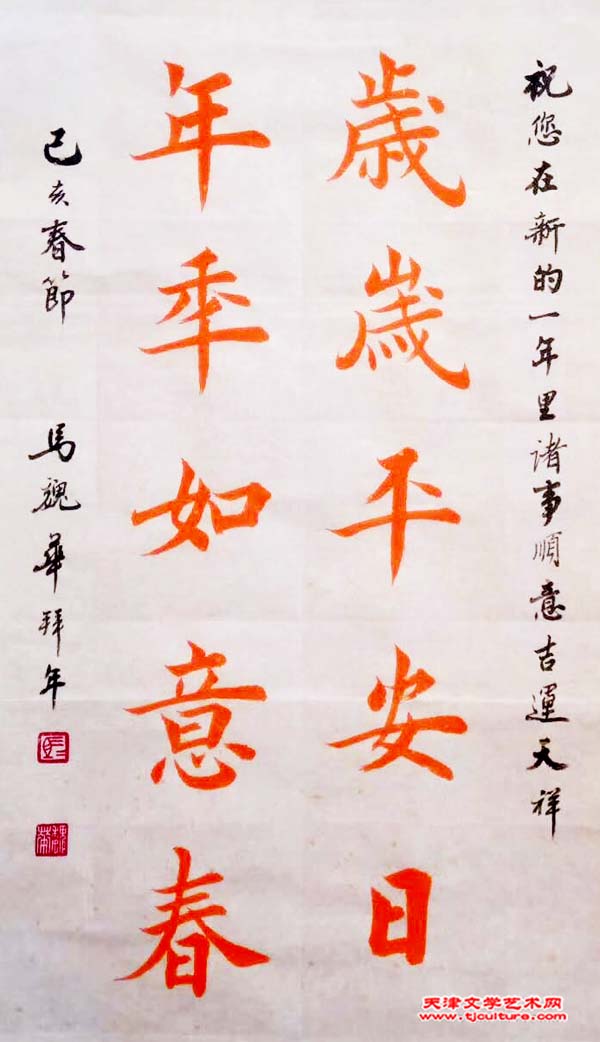 祝您在新的一年里诸事順意吉運天祥
歳歲平安日
年秊如意春
己亥春節 馬魂華拜年
天津文学艺术网
www.tjculture.com